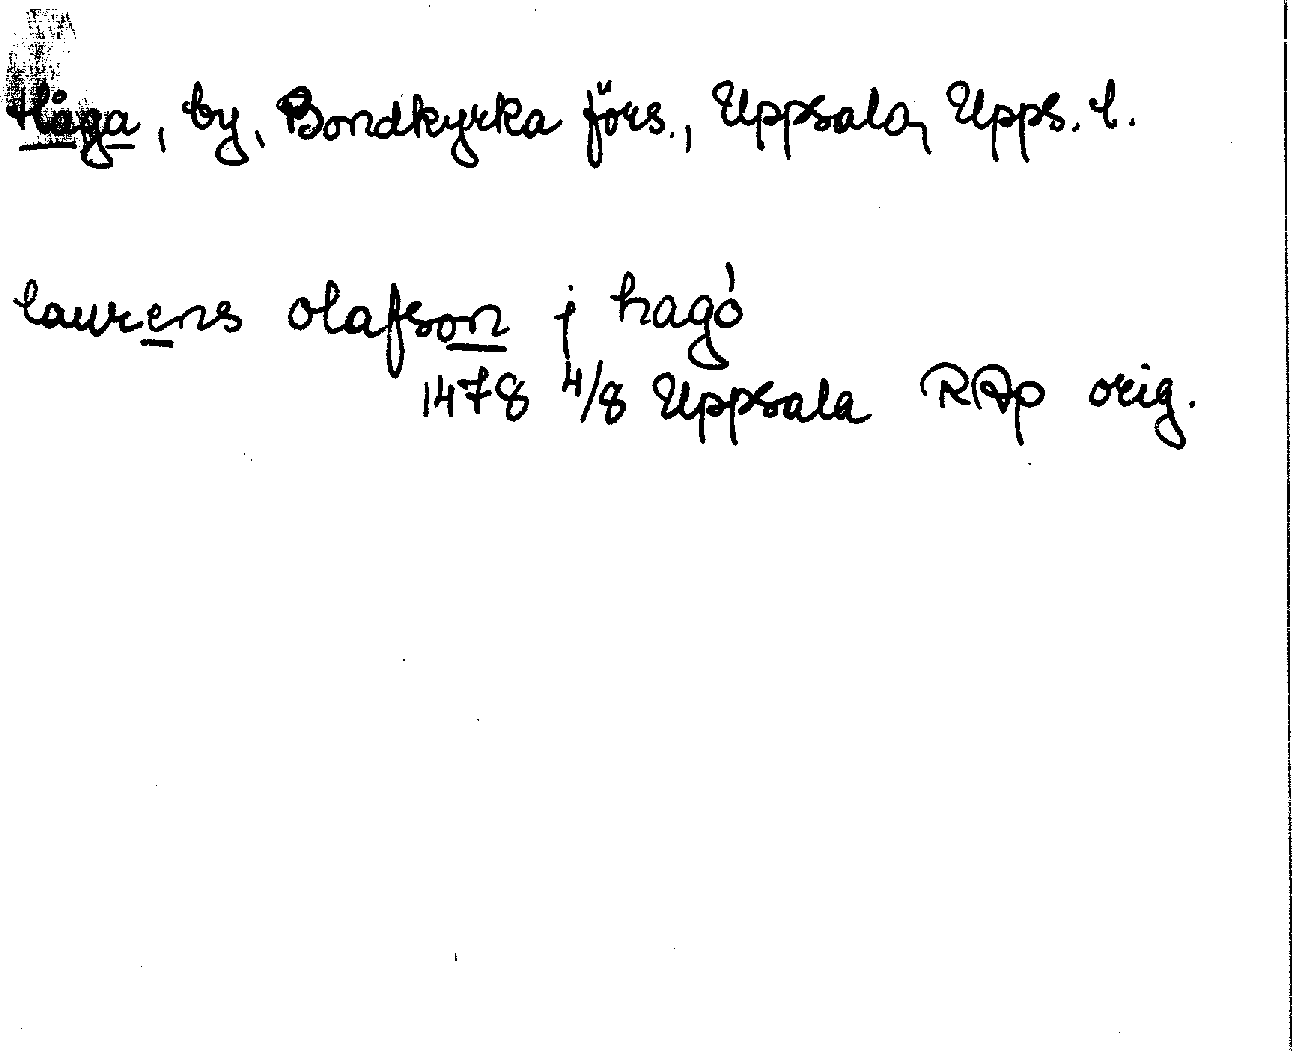 Håga, by, Bondkyrka förs., Uppsala, Upps. l.
laurens olafson j hagó
1478 4/8 Uppsala RAp orig.